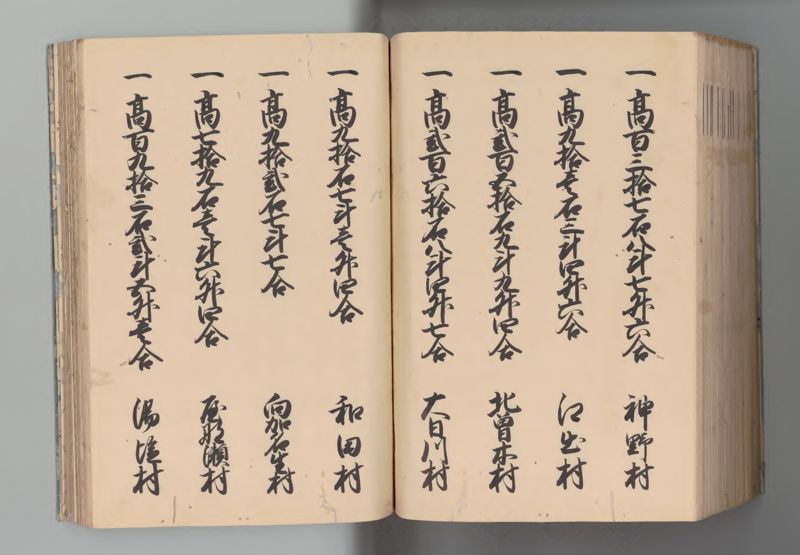 一 高百三拾七石八斗七升六合 神野村
一 高九拾壱石三斗四升六合 江出村
一 高弐百五拾石九斗九升四合 北曽木村
一 高弐百六拾石八斗四升七合 大日川村
一 高九拾石七斗壱升四合 和田村
一 高九拾弐石七斗七合 向加名生村
一 高七拾九石壱斗六升四合 屋那瀬村
一 高百九拾三石弐斗五升壱合 湯塩村